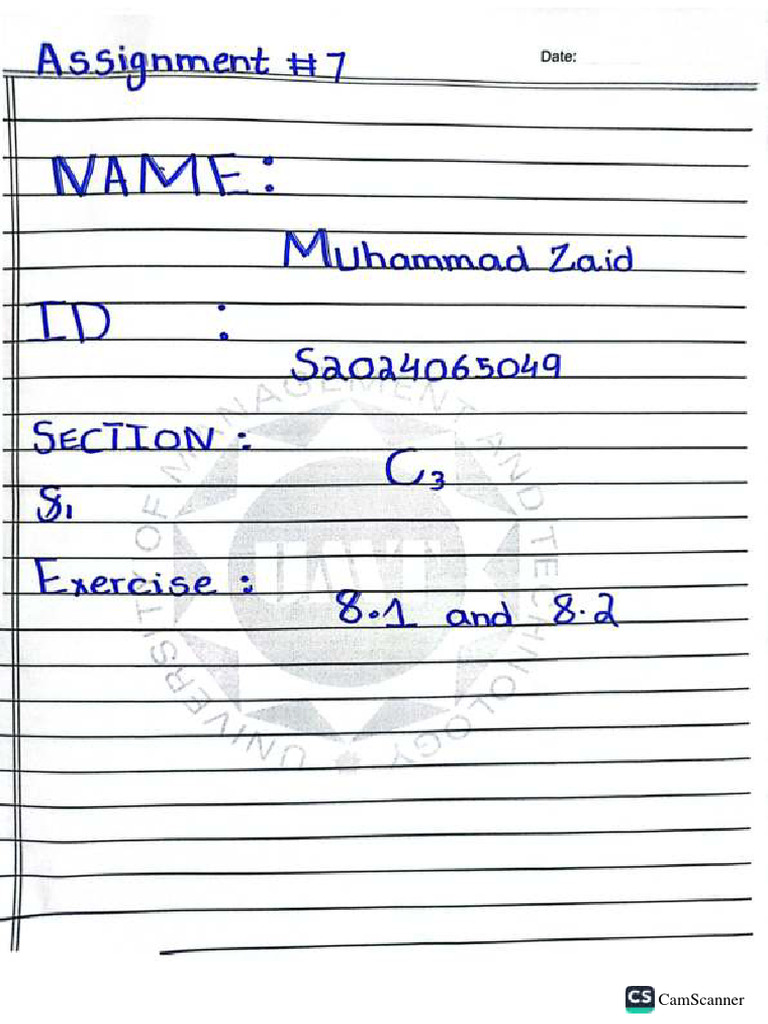 Assignment #7
Date:
NAME:
Muhammad Zaid
ID :
S2024065049
SECTION :
C3
8.
Exercise :
8.1 and 8.2
UNIVERSITY OF MANAGEMENT AND TECHNOLOGY
UMT
CS CamScanner